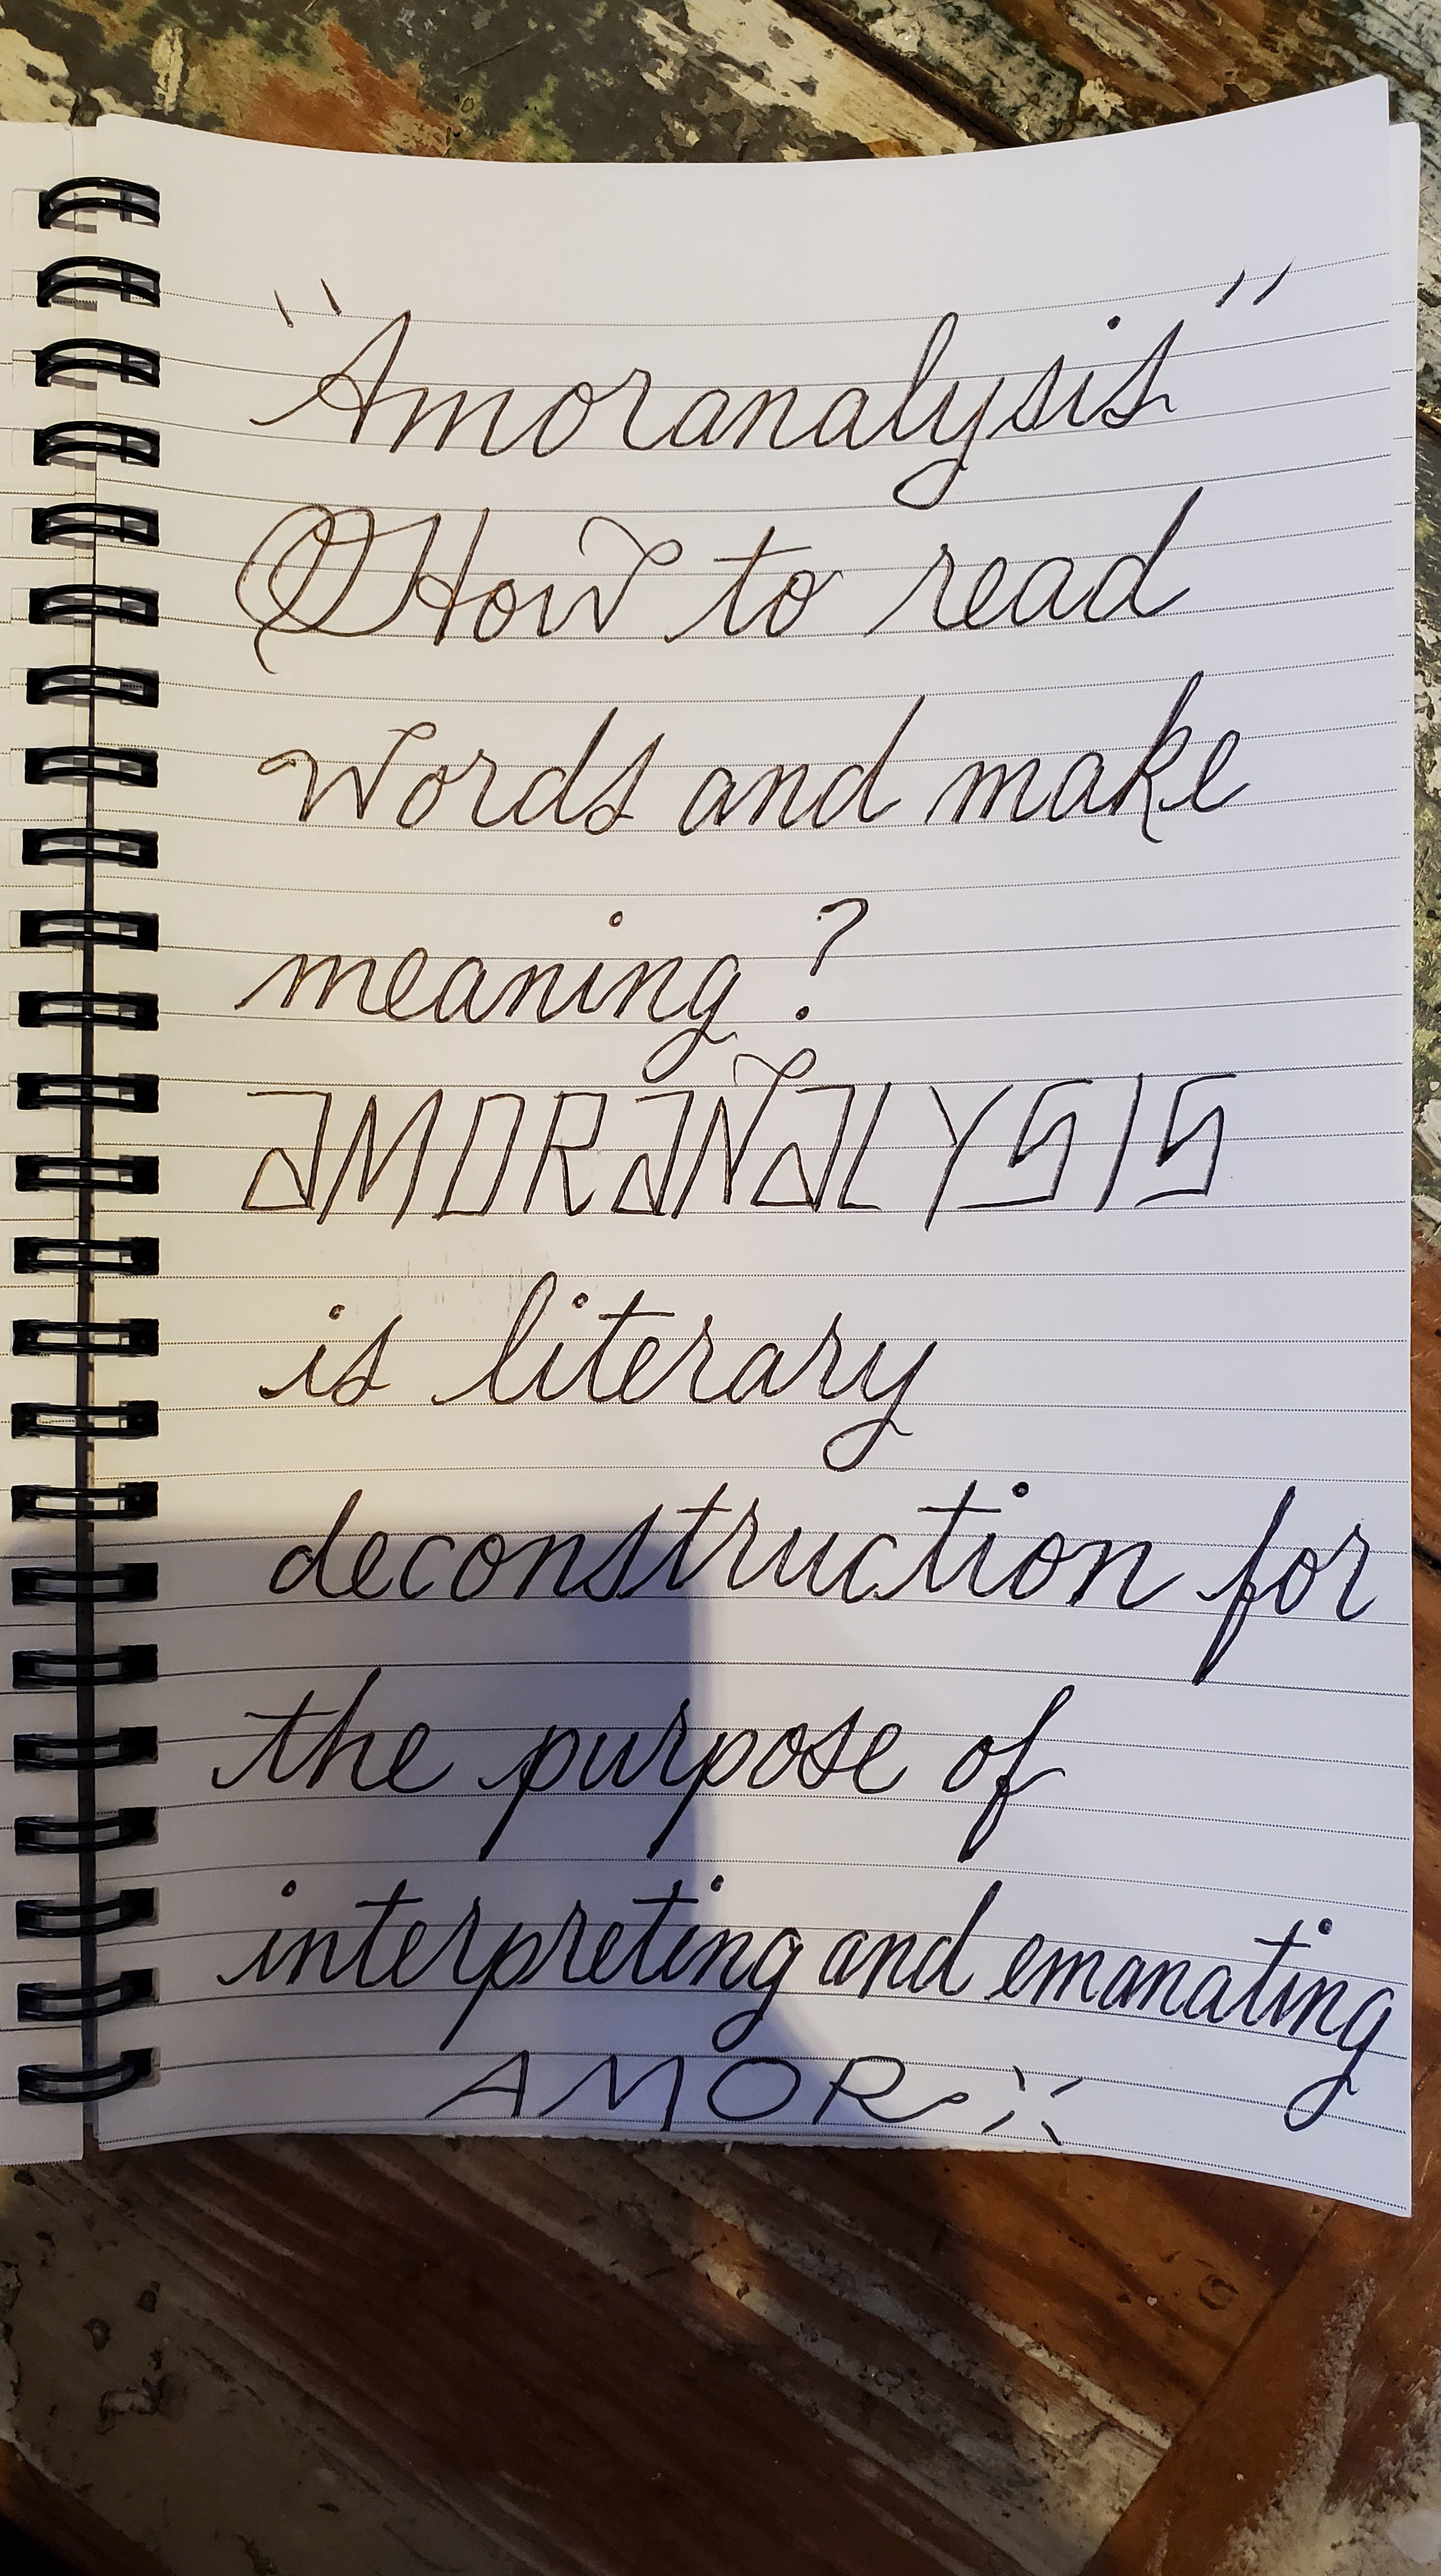 "Amoranalysis"
How to read
words and make
meaning?
AMORANALYSIS
is literary
deconstruction for
the purpose of
interpreting and emanating
AMOR